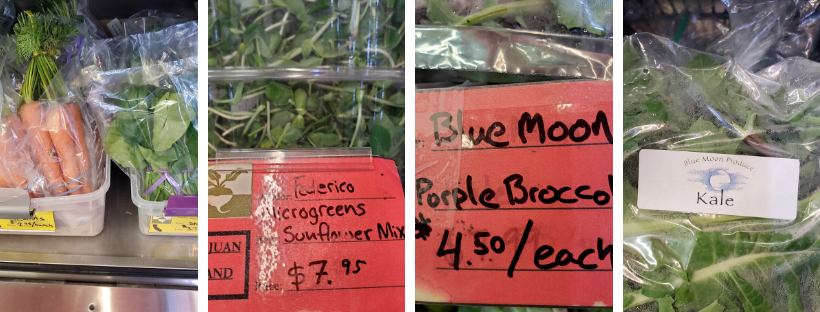 Federico
Microgreens
Sunflower Mix
JUAN
AND
$7.95
Blue Moon
Porple Broccol
* 4.50/each
Blue Moon Produce
Kale